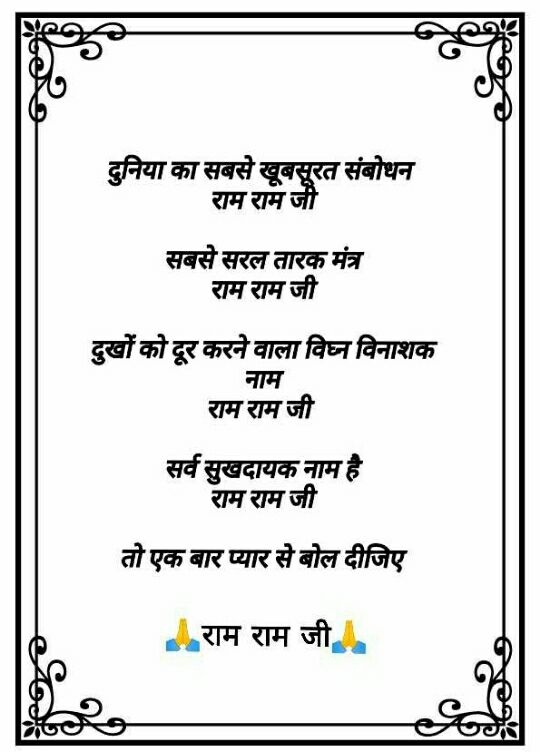 दुनिया का सबसे खूबसूरत संबोधन
राम राम जी
सबसे सरल तारक मंत्र
राम राम जी
दुखों को दूर करने वाला विघ्न विनाशक
नाम
राम राम जी
सर्व सुखदायक नाम है
राम राम जी
तो एक बार प्यार से बोल दीजिए
🙏राम राम जी🙏